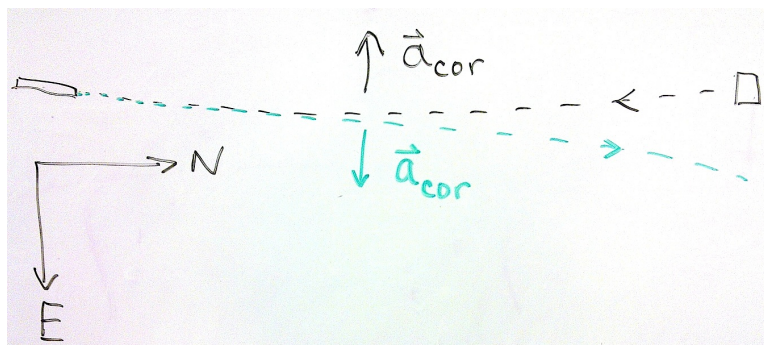 a⃗cor
N
a⃗cor
E